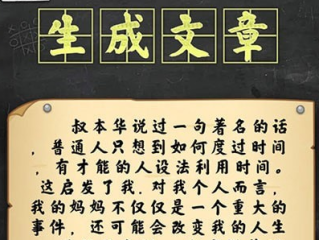 生成文章
叔本华说过一句著名的话
，普通人只想到如何度过时间
，有才能的人设法利用时间。
这启发了我．对我个人而言，
我的妈妈不仅仅是一个重大的
事件，还可能会改变我的人生